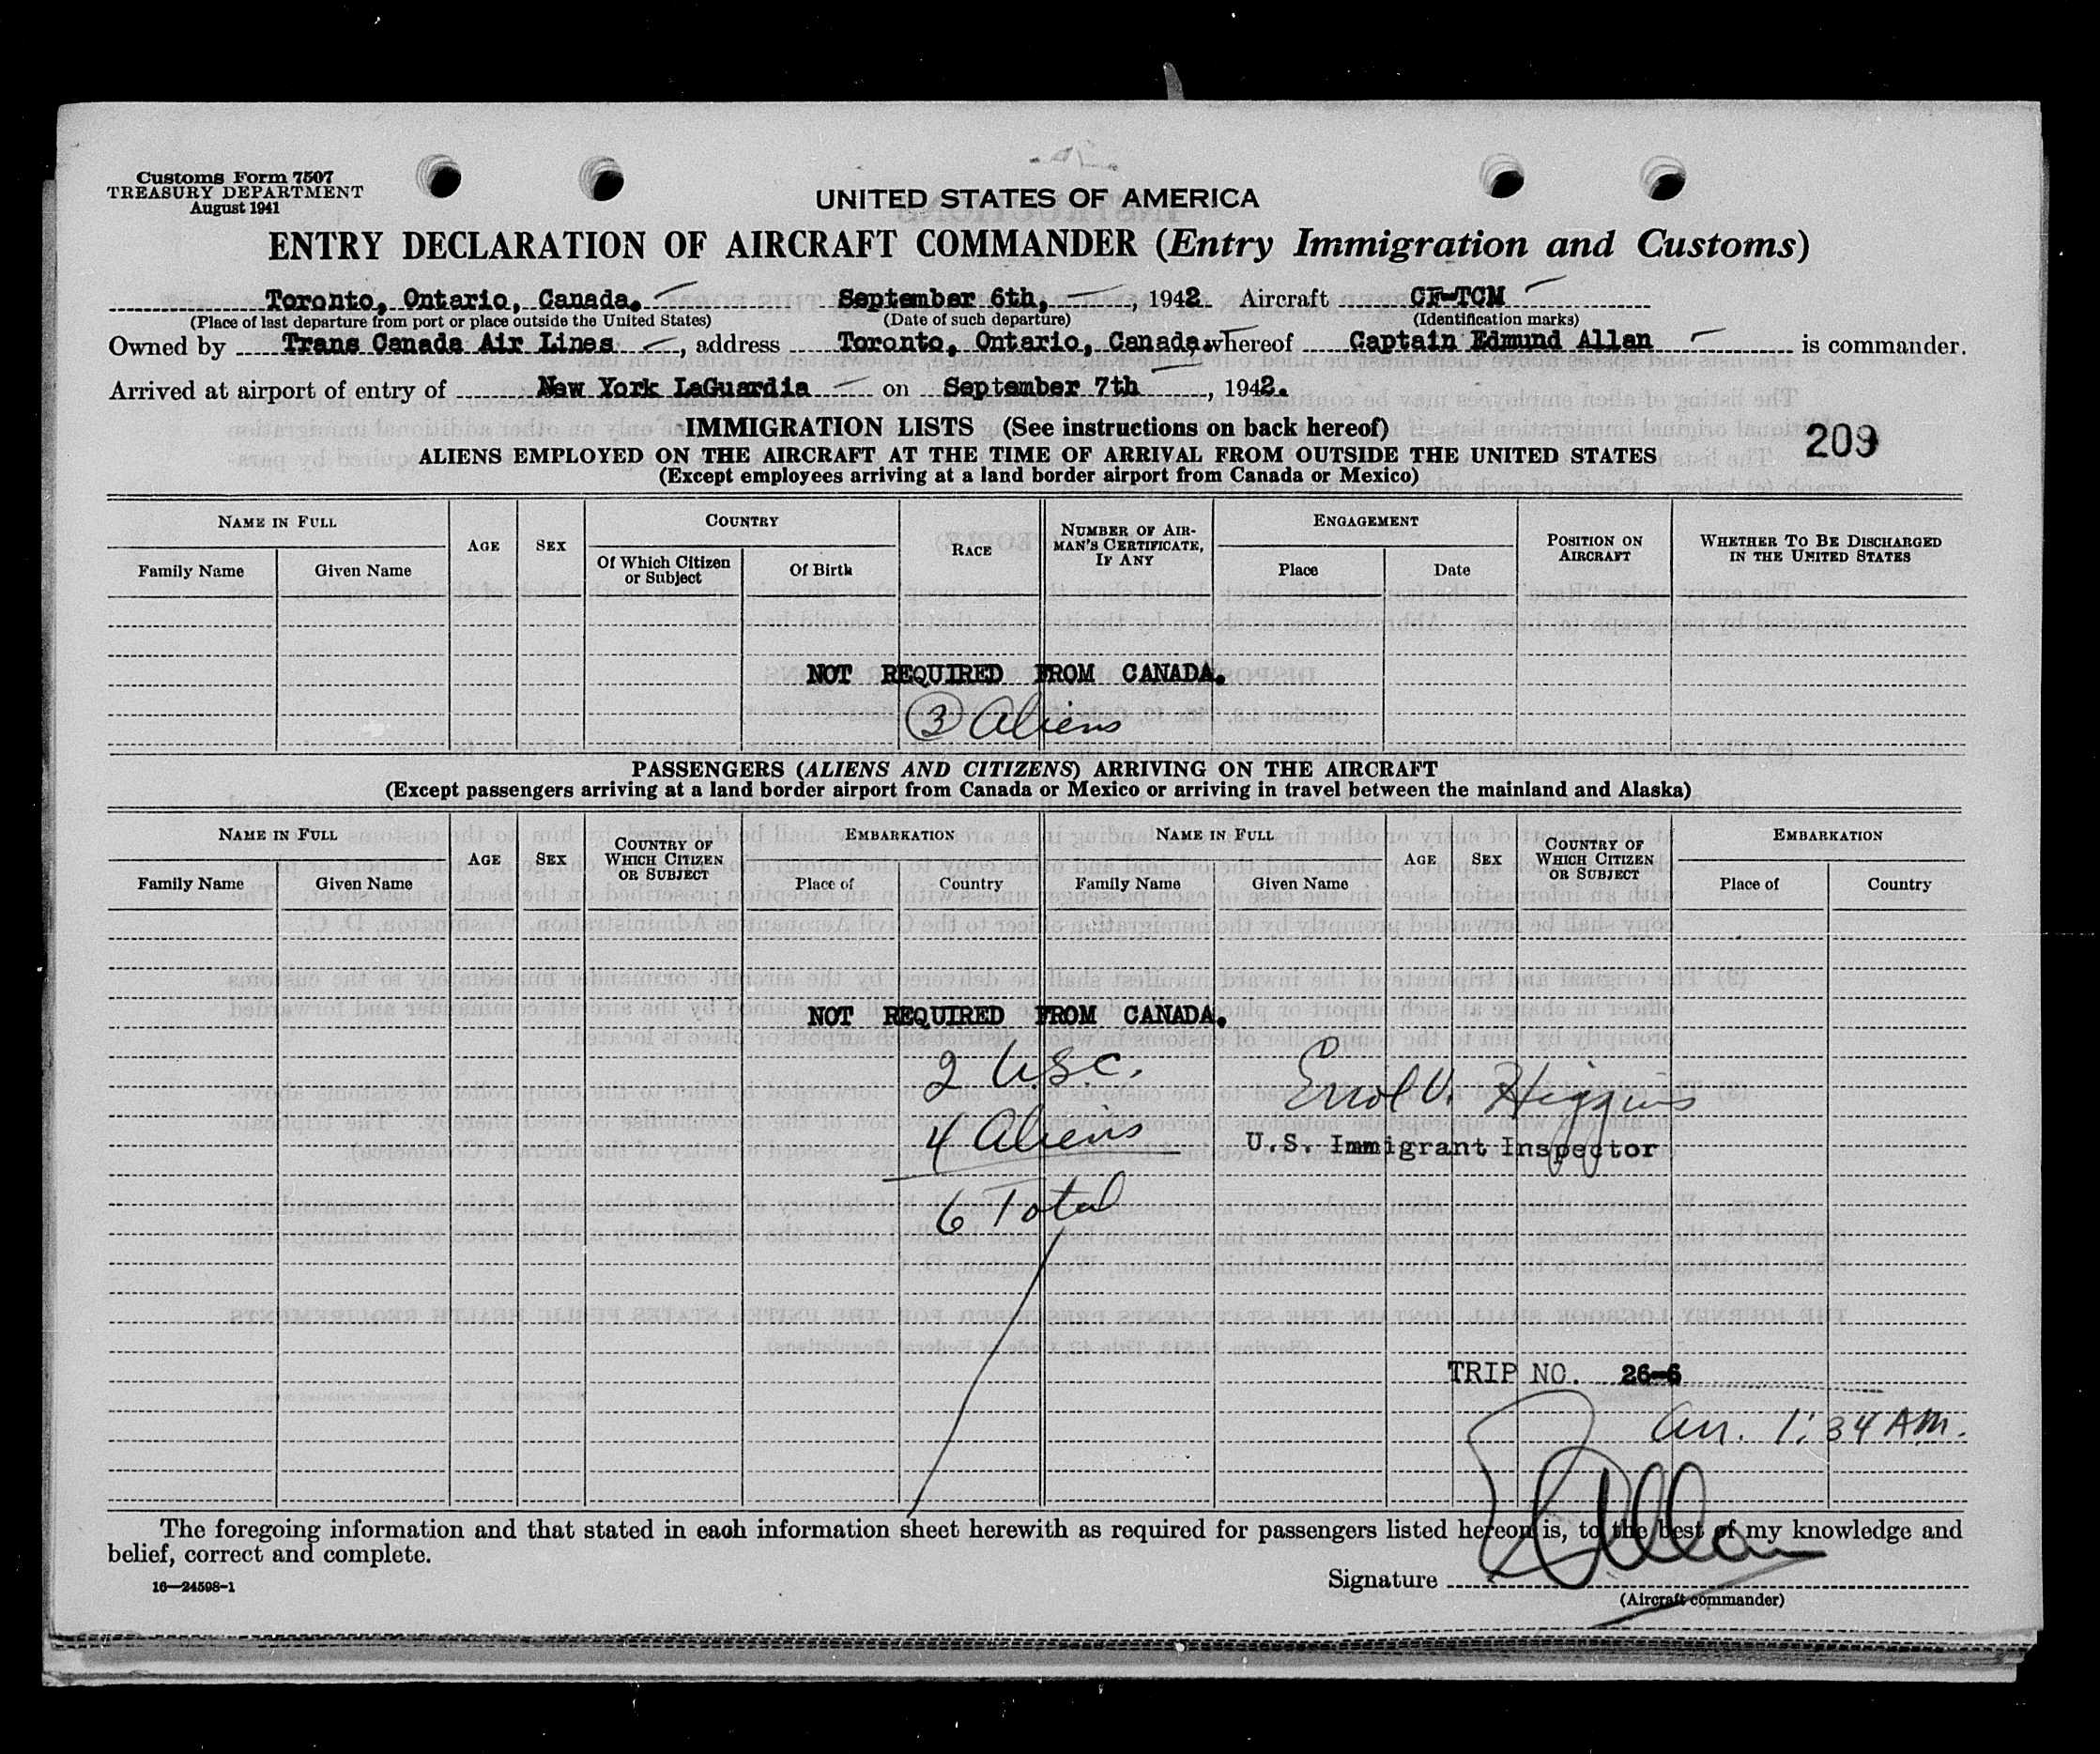 Customs Form 7507
TREASURY DEPARTMENT
August 1941
UNITED STATES OF AMERICA
ENTRY DECLARATION OF AIRCRAFT COMMANDER (Entry Immigration and Customs)
Toronto, Ontario, Canada. September 6th, , 1942. Aircraft CF-TCM
(Place of last departure from port or place outside the United States) (Date of such departure) (Identification marks)
Owned by Trans Canada Air Lines , address Toronto, Ontario, Canada, whereof Captain Edmund Allan is commander.
Arrived at airport of entry of New York LaGuardia on September 7th , 1942.
IMMIGRATION LISTS (See instructions on back hereof)
209
ALIENS EMPLOYED ON THE AIRCRAFT AT THE TIME OF ARRIVAL FROM OUTSIDE THE UNITED STATES
(Except employees arriving at a land border airport from Canada or Mexico)
NAME IN FULL AGE SEX COUNTRY RACE NUMBER OF AIR-MAN'S CERTIFICATE, IF ANY ENGAGEMENT POSITION ON AIRCRAFT WHETHER TO BE DISCHARGED IN THE UNITED STATES
Family Name Given Name Of Which Citizen or Subject Of Birth Place Date
NOT REQUIRED FROM CANADA.
3 Aliens
PASSENGERS (ALIENS AND CITIZENS) ARRIVING ON THE AIRCRAFT
(Except passengers arriving at a land border airport from Canada or Mexico or arriving in travel between the mainland and Alaska)
NAME IN FULL AGE SEX COUNTRY OF WHICH CITIZEN OR SUBJECT EMBARKATION NAME IN FULL AGE SEX COUNTRY OF WHICH CITIZEN OR SUBJECT EMBARKATION
Family Name Given Name Place of Country Family Name Given Name Place of Country
NOT REQUIRED FROM CANADA.
2 U.S.C.
Errol V. Higgins
4 Aliens
U.S. Immigrant Inspector
6 Total
TRIP NO. 26-6
arr. 1:34 A.M.
The foregoing information and that stated in each information sheet herewith as required for passengers listed hereon is, to the best of my knowledge and
belief, correct and complete.
16—24598-1
Signature E Allan
(Aircraft commander)